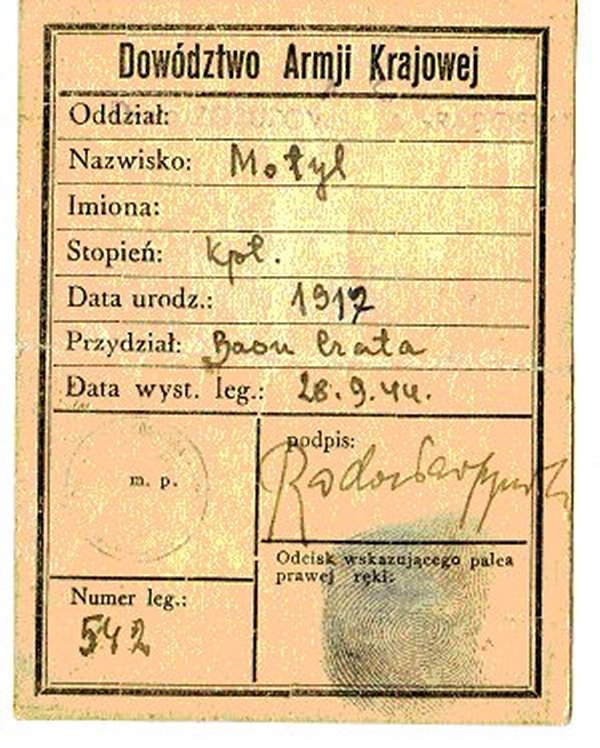 Dowództwo Armji Krajowej
Oddział:
Nazwisko: Motyl
Imiona:
Stopień: kpł.
Data urodz.: 1917
Przydział: Baon Czata
Data wyst. leg.: 28.9.44.
podpis:
m. p.
Odcisk wskazującego palca
prawej ręki:
Numer leg.:
542